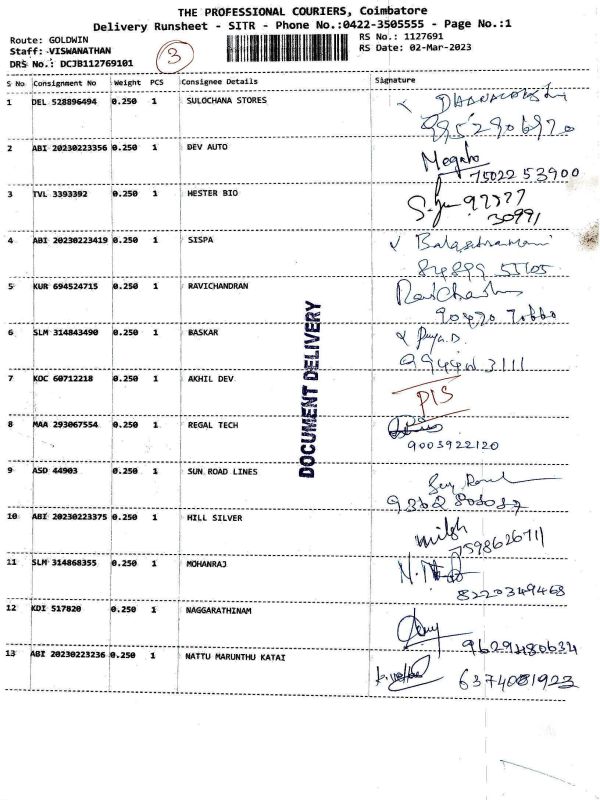 THE PROFESSIONAL COURIERS, Coimbatore
Delivery Runsheet - SITR - Phone No.:0422-3505555 - Page No.:1
Route: GOLDWIN
Staff: VISWANATHAN
DRS No.: DCJB112769101
3
RS No.: 1127691
RS Date: 02-Mar-2023
S No Consignment No Weight PCS Consignee Details Signature
1 DEL 528896494 0.250 1 SULOCHANA STORES
2 ABI 20230223356 0.250 1 DEV AUTO
75022 53900
3 TVL 3393392 0.250 1 HESTER BIO
30991
4 ABI 20230223419 0.250 1 SISPA
5 KUR 694524715 0.250 1 RAVICHANDRAN
6 SLM 314843490 0.250 1 BASKAR
7 KOC 60712218 0.250 1 AKHIL DEV
8 MAA 293067554 0.250 1 REGAL TECH
9003922120
9 ASD 44903 0.250 1 SUN ROAD LINES
10 ABI 20230223375 0.250 1 HILL SILVER
7598626711
11 SLM 314868355 0.250 1 MOHANRAJ
8220349468
12 KDI 517820 0.250 1 NAGGARATHINAM
9629480634
13 ABI 20230223236 0.250 1 NATTU MARUNTHU KATAI
6374081923
DOCUMENT DELIVERY